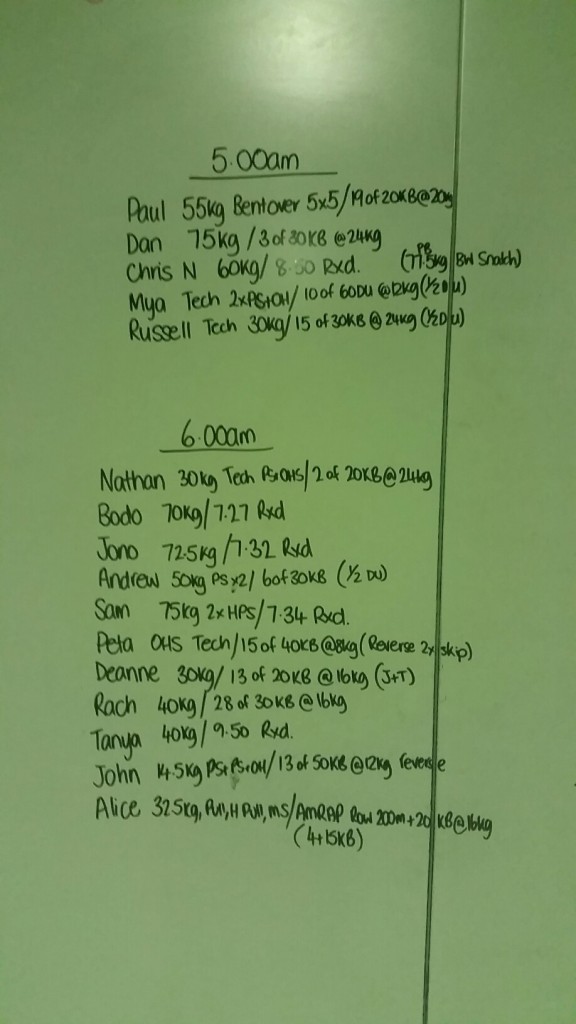 5.00am
Paul 55kg Bentover 5x5/19 of 20KB@20kg
Dan 75kg /3 of 30KB @24kg
Chris N 60kg/ 8.50 Rxd. (PB 77.5kg BW Snatch)
Mya Tech 2xPS+OH/ 10 of 60DU @12kg (½ DU)
Russell Tech 30kg/ 15 of 30KB @ 24kg (½ DU)
6.00am
Nathan 30kg Tech PS+OHS/ 2 of 20KB@24kg
Bodo 70kg/7.27 Rxd
Jono 72.5kg /7.32 Rxd
Andrew 50kg PSx2/ 6 of 30KB (½ DU)
Sam 75kg 2xHPS/7.34 Rxd.
Peta OHS Tech/15 of 40KB@8kg (Reverse 2x skip)
Deanne 30kg/ 13 of 20KB @ 16kg (J+T)
Rach 40kg/ 28 of 30KB @ 16kg
Tanya 40kg/ 9.50 Rxd.
John 14.5kg PS+PS+OH/ 13 of 50KB@12kg reverse
Alice 32.5kg, Pull, H Pull, MS/AMRAP Row 200m+20 KB@16kg
(4+15KB)